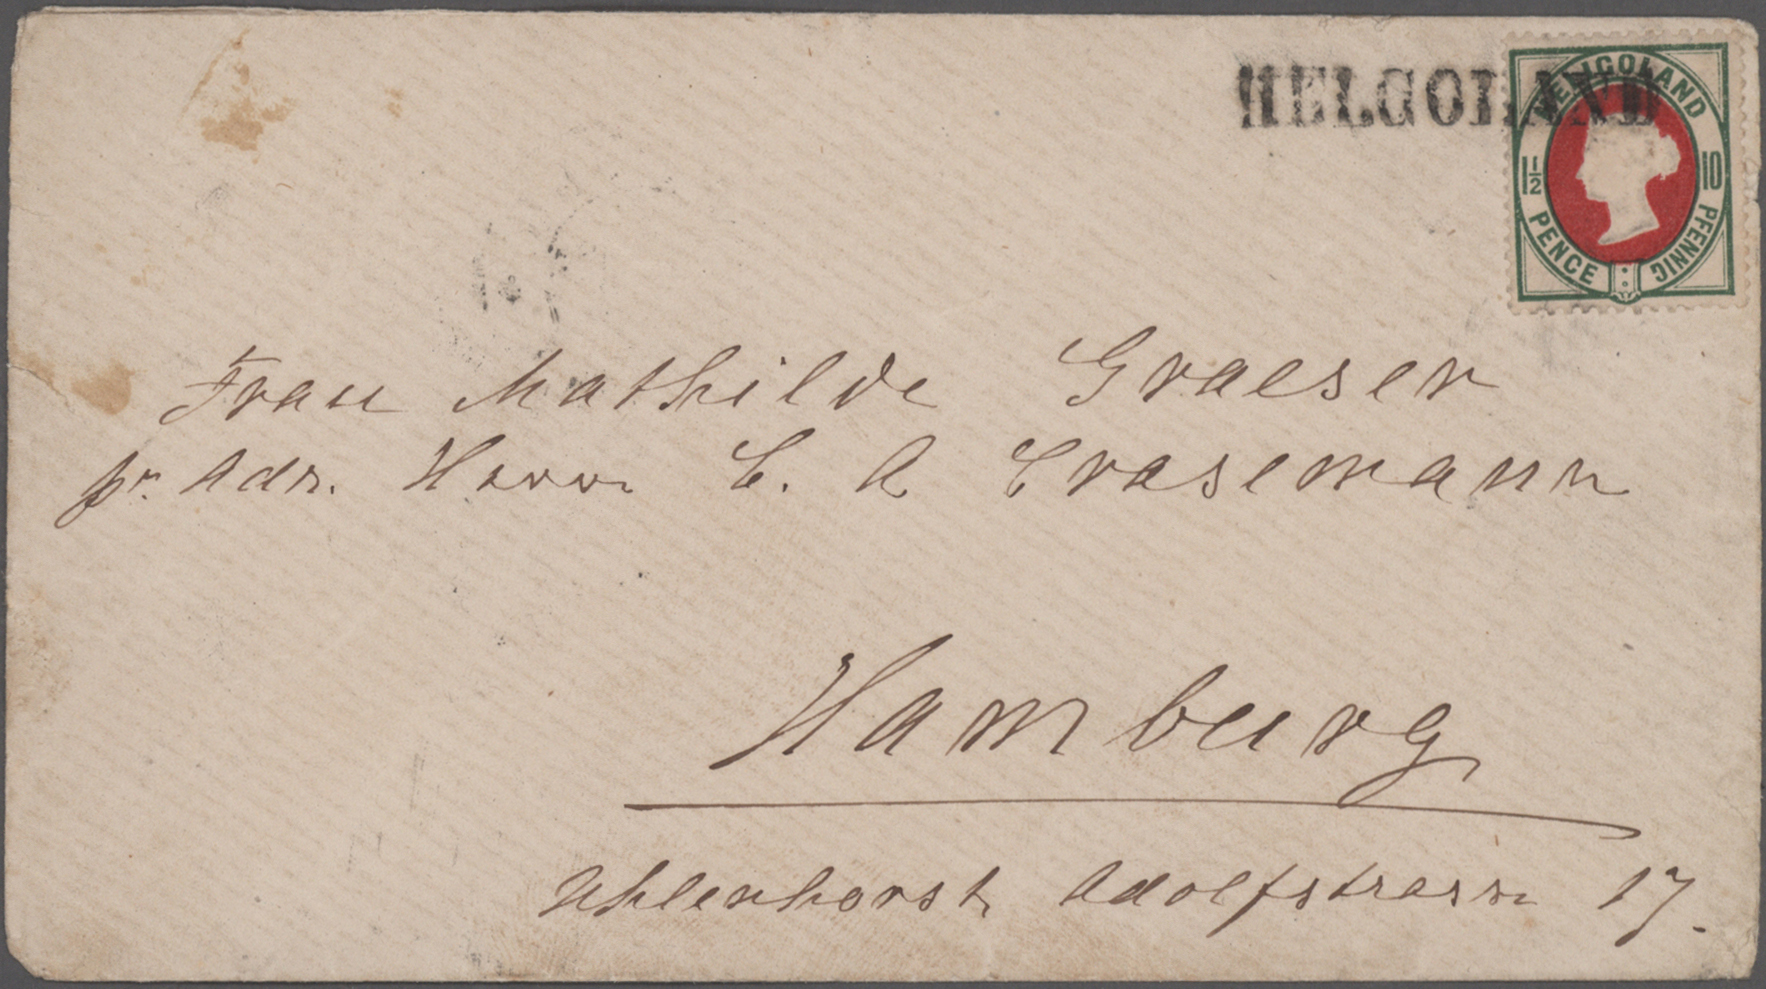 HELGOLAND
HELIGOLAND
1½ PENCE 10 PFENNIG
Frau Mathilde Graeser
pr. Adr. Herrn C. A Crasemann
Hamburg
Uhlenhorst Adolfstrasse 17.